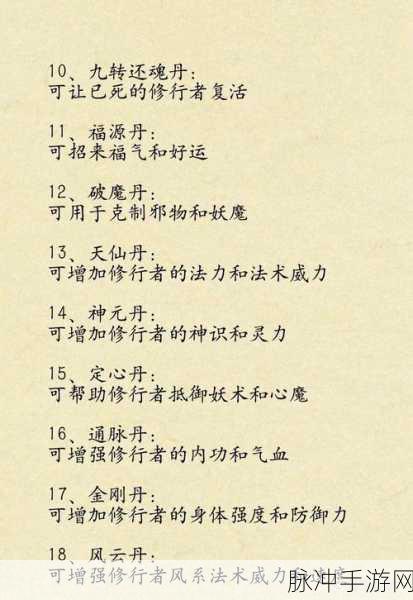 10、九转还魂丹:
可让已死的修行者复活
11、福源丹:
可招来福气和好运
12、破魔丹:
可用于克制邪物和妖魔
13、天仙丹:
可增加修行者的法力和法术威力
14、神元丹:
可增加修行者的神识和灵力
15、定心丹:
可帮助修行者抵御妖术和心魔
16、通脉丹:
可增强修行者的内功和气血
17、金刚丹:
可增加修行者的身体强度和防御力
18、风云丹:
可增强修行者风系法术威力和速度
脉冲手游网